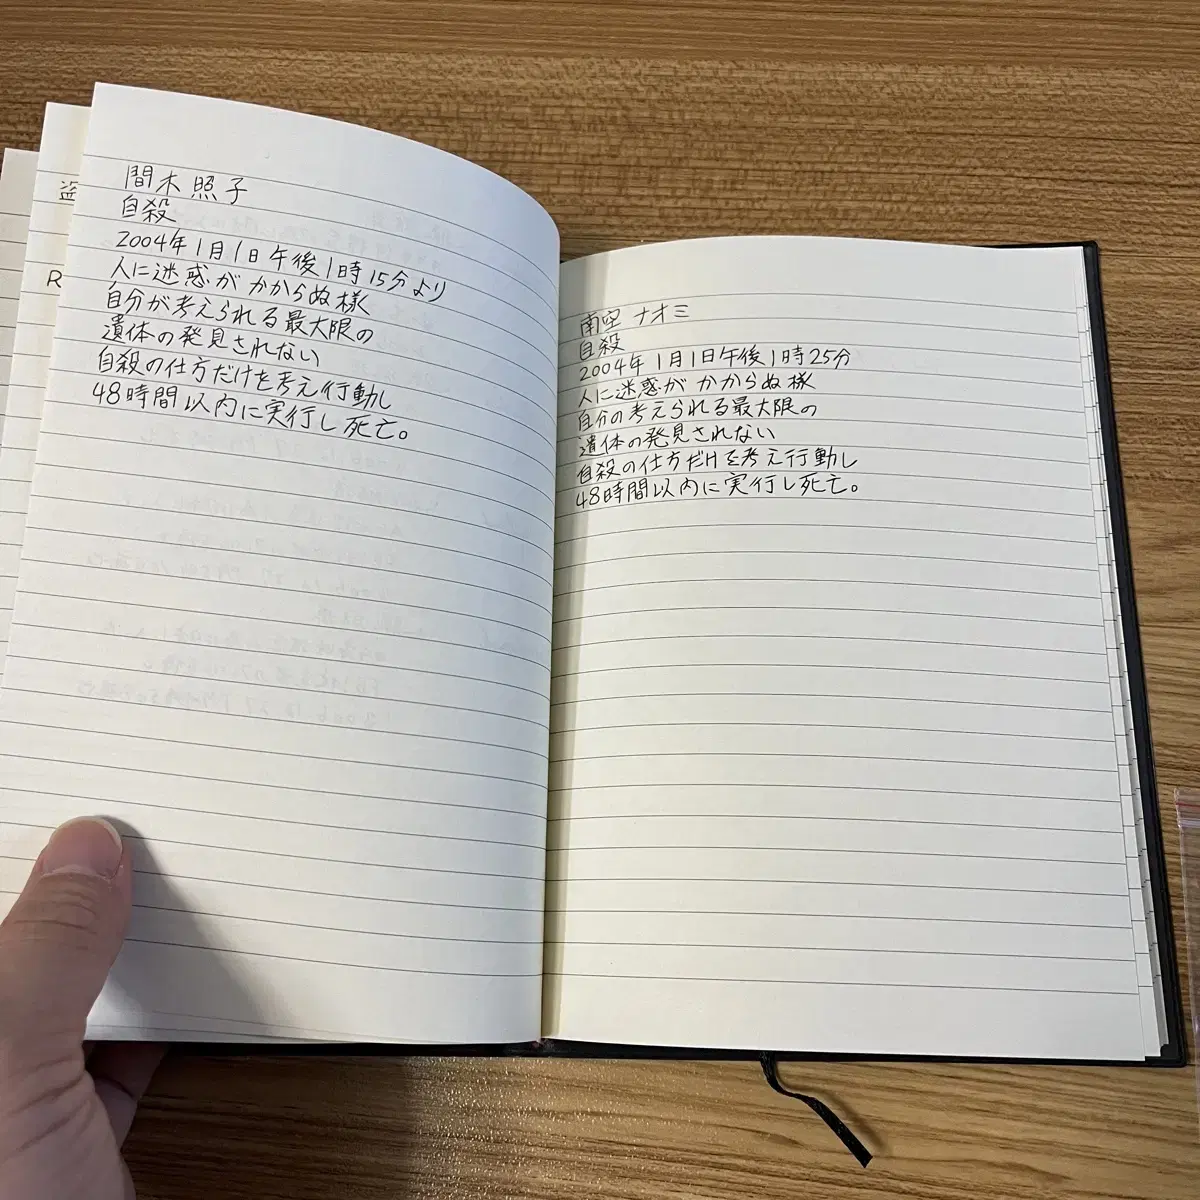 盗
R
間木照子
自殺
2004年1月1日午後1時15分より
人に迷惑がかからぬ様
自分が考えられる最大限の
遺体の発見されない
自殺の仕方だけを考え行動し
48時間以内に実行し死亡。
南空ナオミ
自殺
2004年1月1日午後1時25分
人に迷惑がかからぬ様
自分の考えられる最大限の
遺体の発見されない
自殺の仕方だけを考え行動し
48時間以内に実行し死亡。